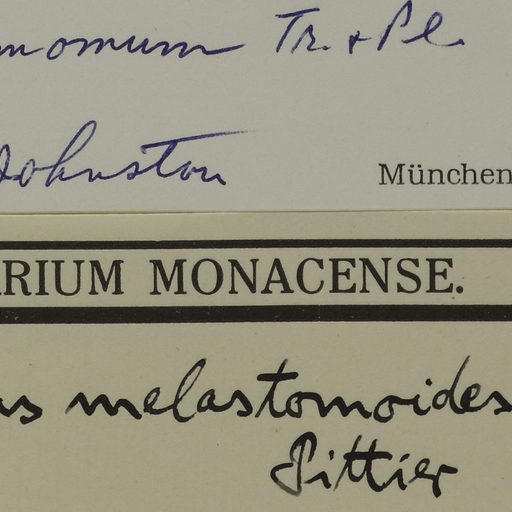 momum Tr. & Pl.
Johnston
München
RIUM MONACENSE.
us melastomoides
Pittier